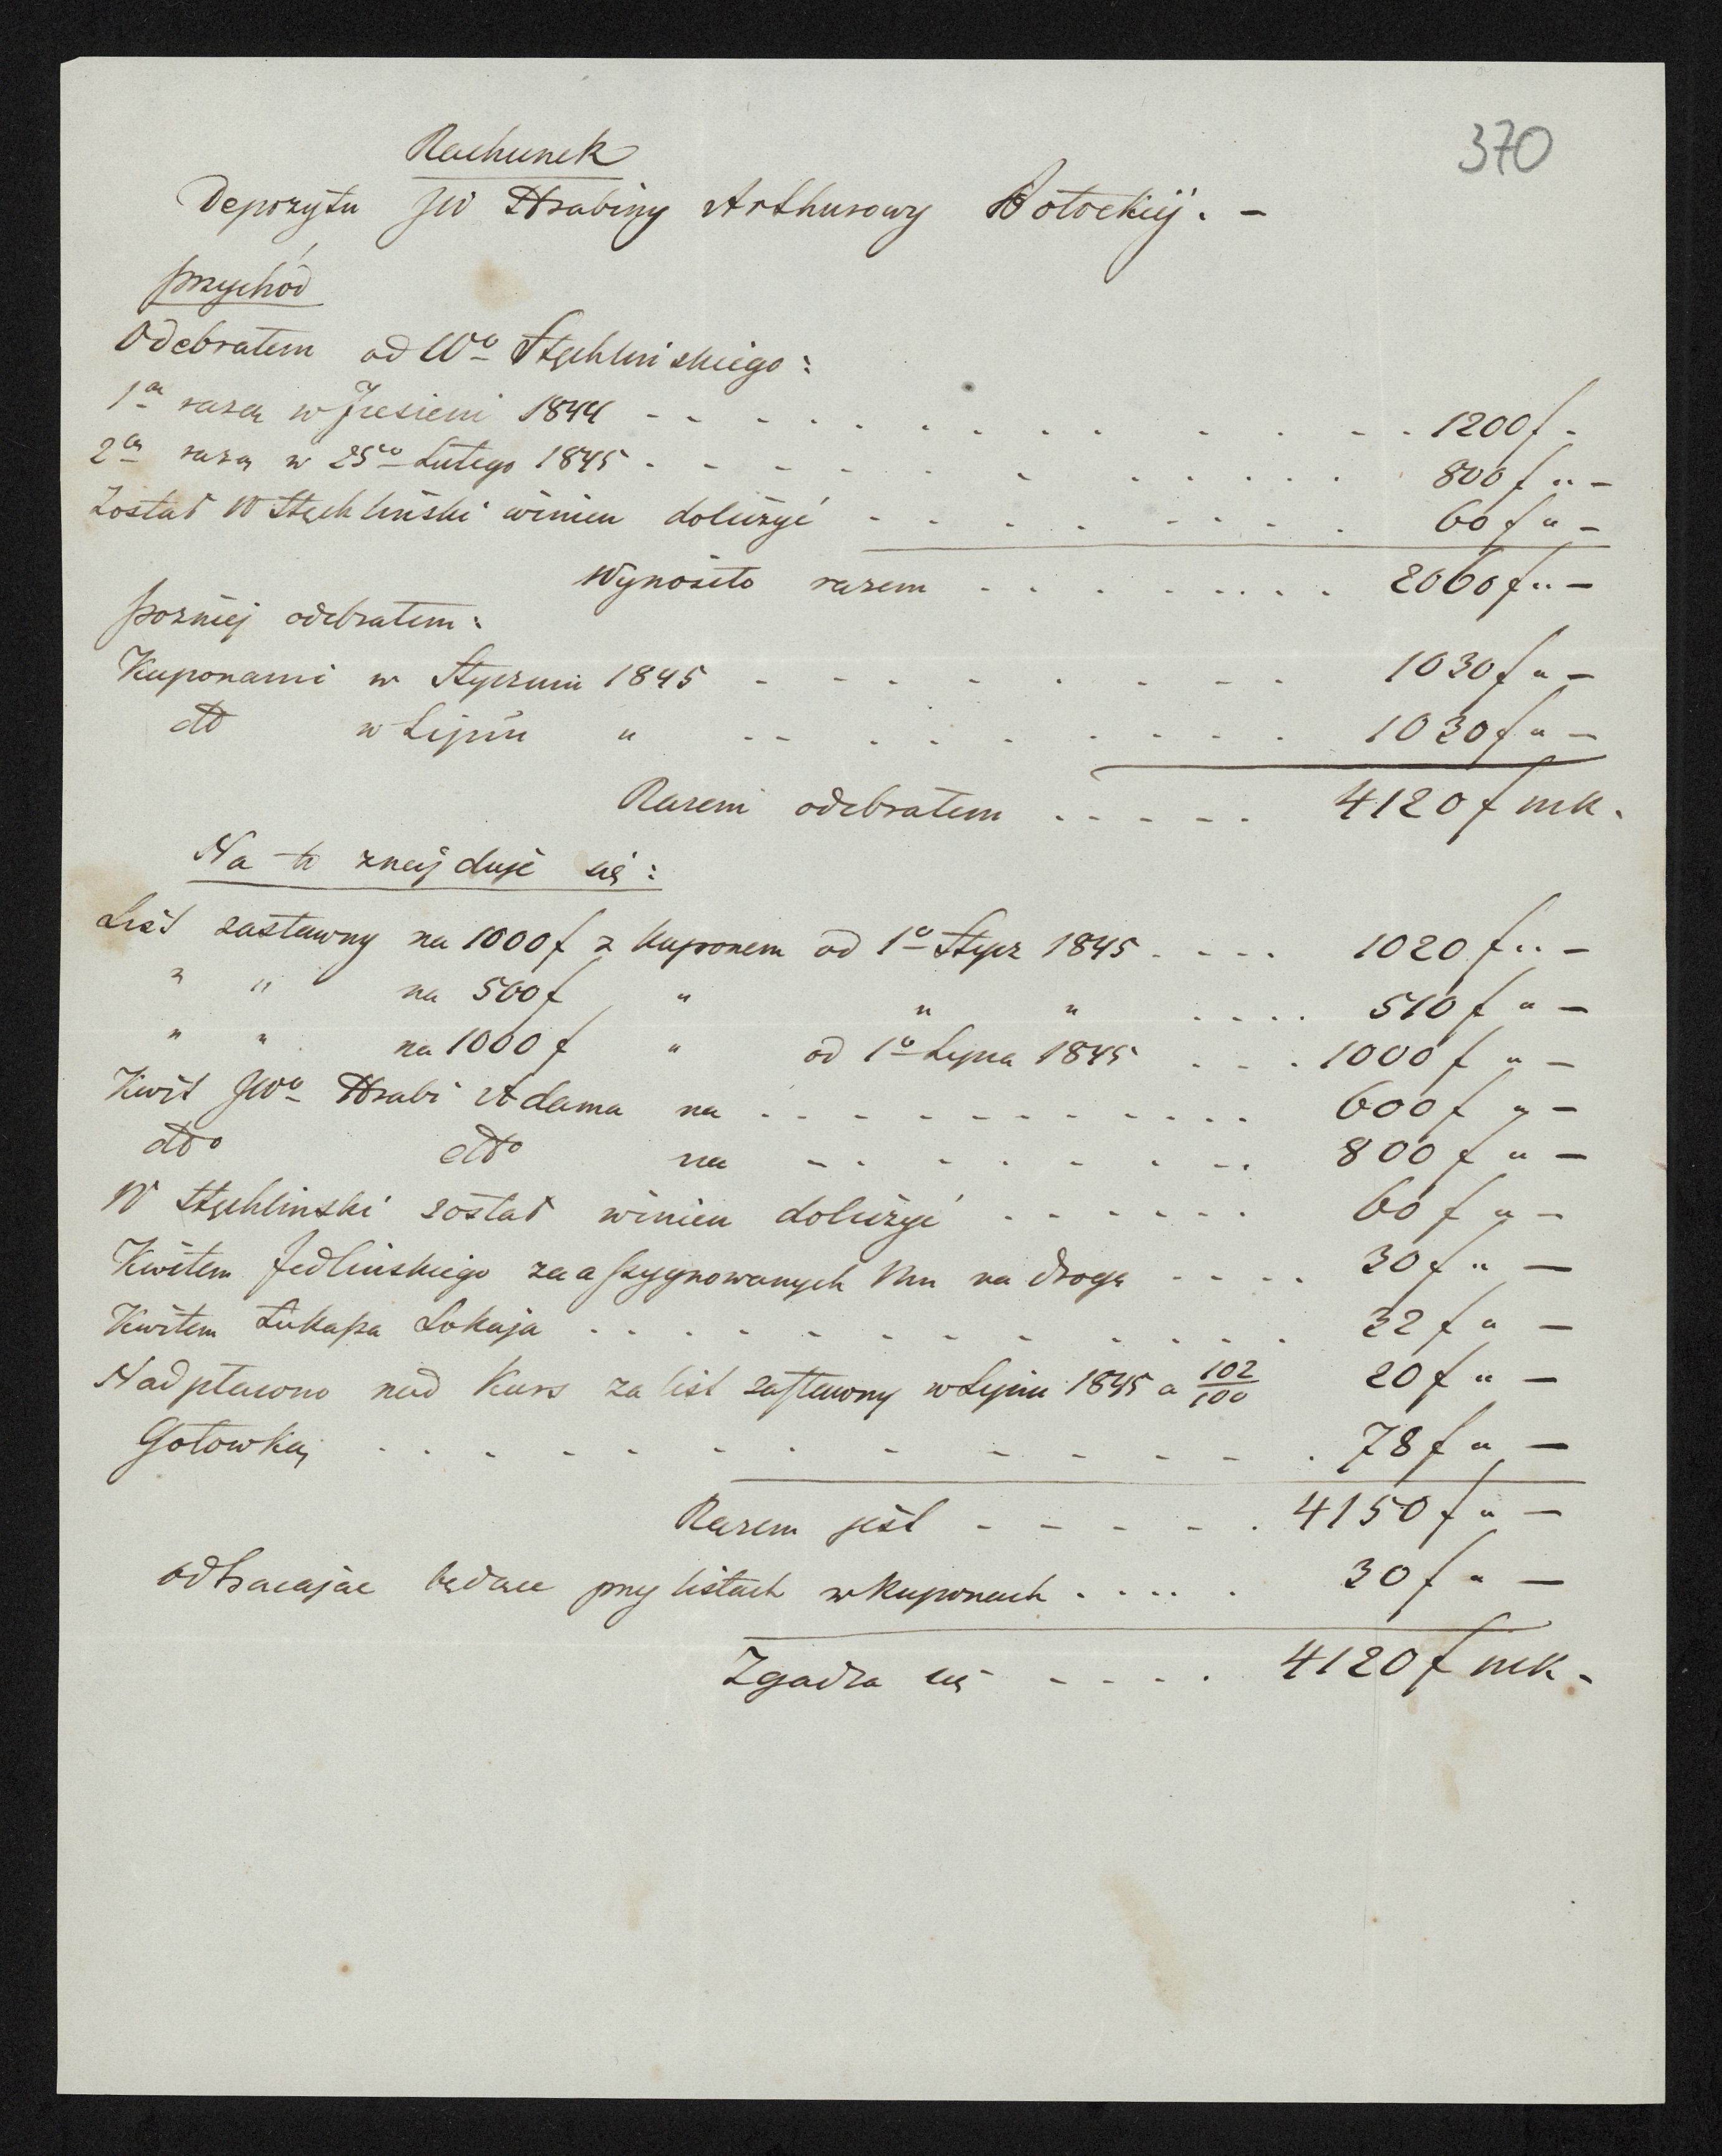 370
Rachunek
Depozytu JW Hrabiny Arthurowy Potockiéj. –
przychód
Odebrałem od Wº Stęchlińskiego:
1ą razą w Jesieni 1844 - - - - - - - - - - - - 1200 f -
2ą razą w 25º Lutego 1845 - - - - - - - - - - - 800 f " –
Został W Stęchliński winien dołużyć - - - - - - - - 60 f " –
Wynosiło razem - - - - - - - - 2060 f " –
pozniej odebrałem:
Kuponami w Styczniu 1845 - - - - - - - - - 1030 f " –
dtt w Lipiu " - - - - - - - - - 1030 f " –
Razem odebrałem - - - - - 4120 f mk.
Na to znajduje się:
List zastawny na 1000 f z kuponem od 1º Stycz 1845 - - - - 1020 f " –
" " na 500 f " " " - - - - 510 f " –
" " na 1000 f " od 1º Lipca 1845 - - - 1000 f " –
Kwit JWº Hrabi Adama na - - - - - - - - - - - 600 f " –
dttº dttº na - - - - - - - - 800 f " –
W Stęchlinski został winien dołużyć - - - - - - 60 f " –
Kwitem Jedlińskiego zaaszygnowanych Mu na drogę - - - - 30 f " –
Kwitem Łukasza Lokaja - - - - - - - - - - - - 32 f " –
Nadpłacono nad kurs za list zastawny w Lipiu 1845 a 102/100 20 f " –
Gotowką - - - - - - - - - - - - - 78 f " –
Razem jest - - - - - 4150 f " –
odtracając będące przy listach w kuponach - - - - - 30 f " –
Zgadza się - - - - 4120 f mk -